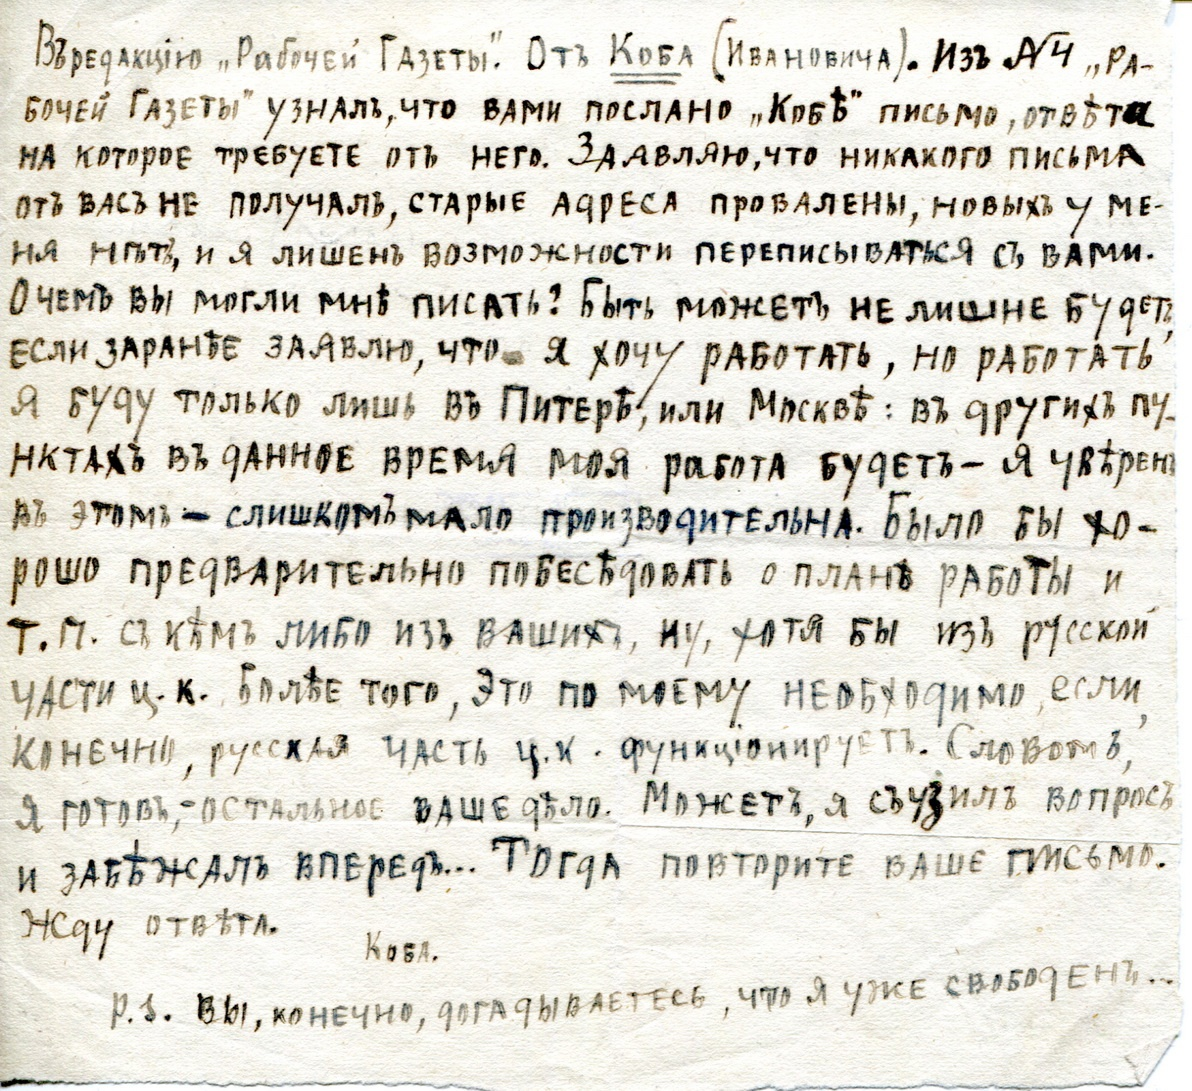 Въ редакцію „Рабочей Газеты". Отъ Коба (Ивановича). Изъ №4 „Ра-
бочей Газеты" узналъ, что вами послано „Кобѣ" письмо, отвѣта
на которое требуете отъ него. Здавляю, что никакого письма
отъ васъ не получалъ, старые адреса провалены, новыхъ у ме-
ня нѣтъ, и я лишенъ возможности переписываться съ вами.
О чемъ вы могли мнѣ писать? Быть можетъ не лишне будетъ,
если заранѣе заявлю, что я хочу работать, но работать
я буду только лишь въ Питерѣ, или Москвѣ: въ другихъ пу-
нктахъ въ данное время моя работа будетъ – я увѣренъ
въ этомъ – слишкомъ мало производительна. Было бы хо-
рошо предварительно побесѣдовать о планѣ работы и
т.п. съ кѣмъ либо изъ вашихъ, ну, хотя бы изъ русской
части ц.к. Болѣе того, это по моему необходимо, если,
конечно, русская часть ц.к. функціонируетъ. Словомъ,
я готовъ, – остальное ваше дѣло. Можетъ, я съузилъ вопросъ
и забѣжалъ впередъ... Тогда повторите ваше письмо.
Жду отвѣта.
Коба.
P.S. Вы, конечно, догадываетесь, что я уже свободенъ...